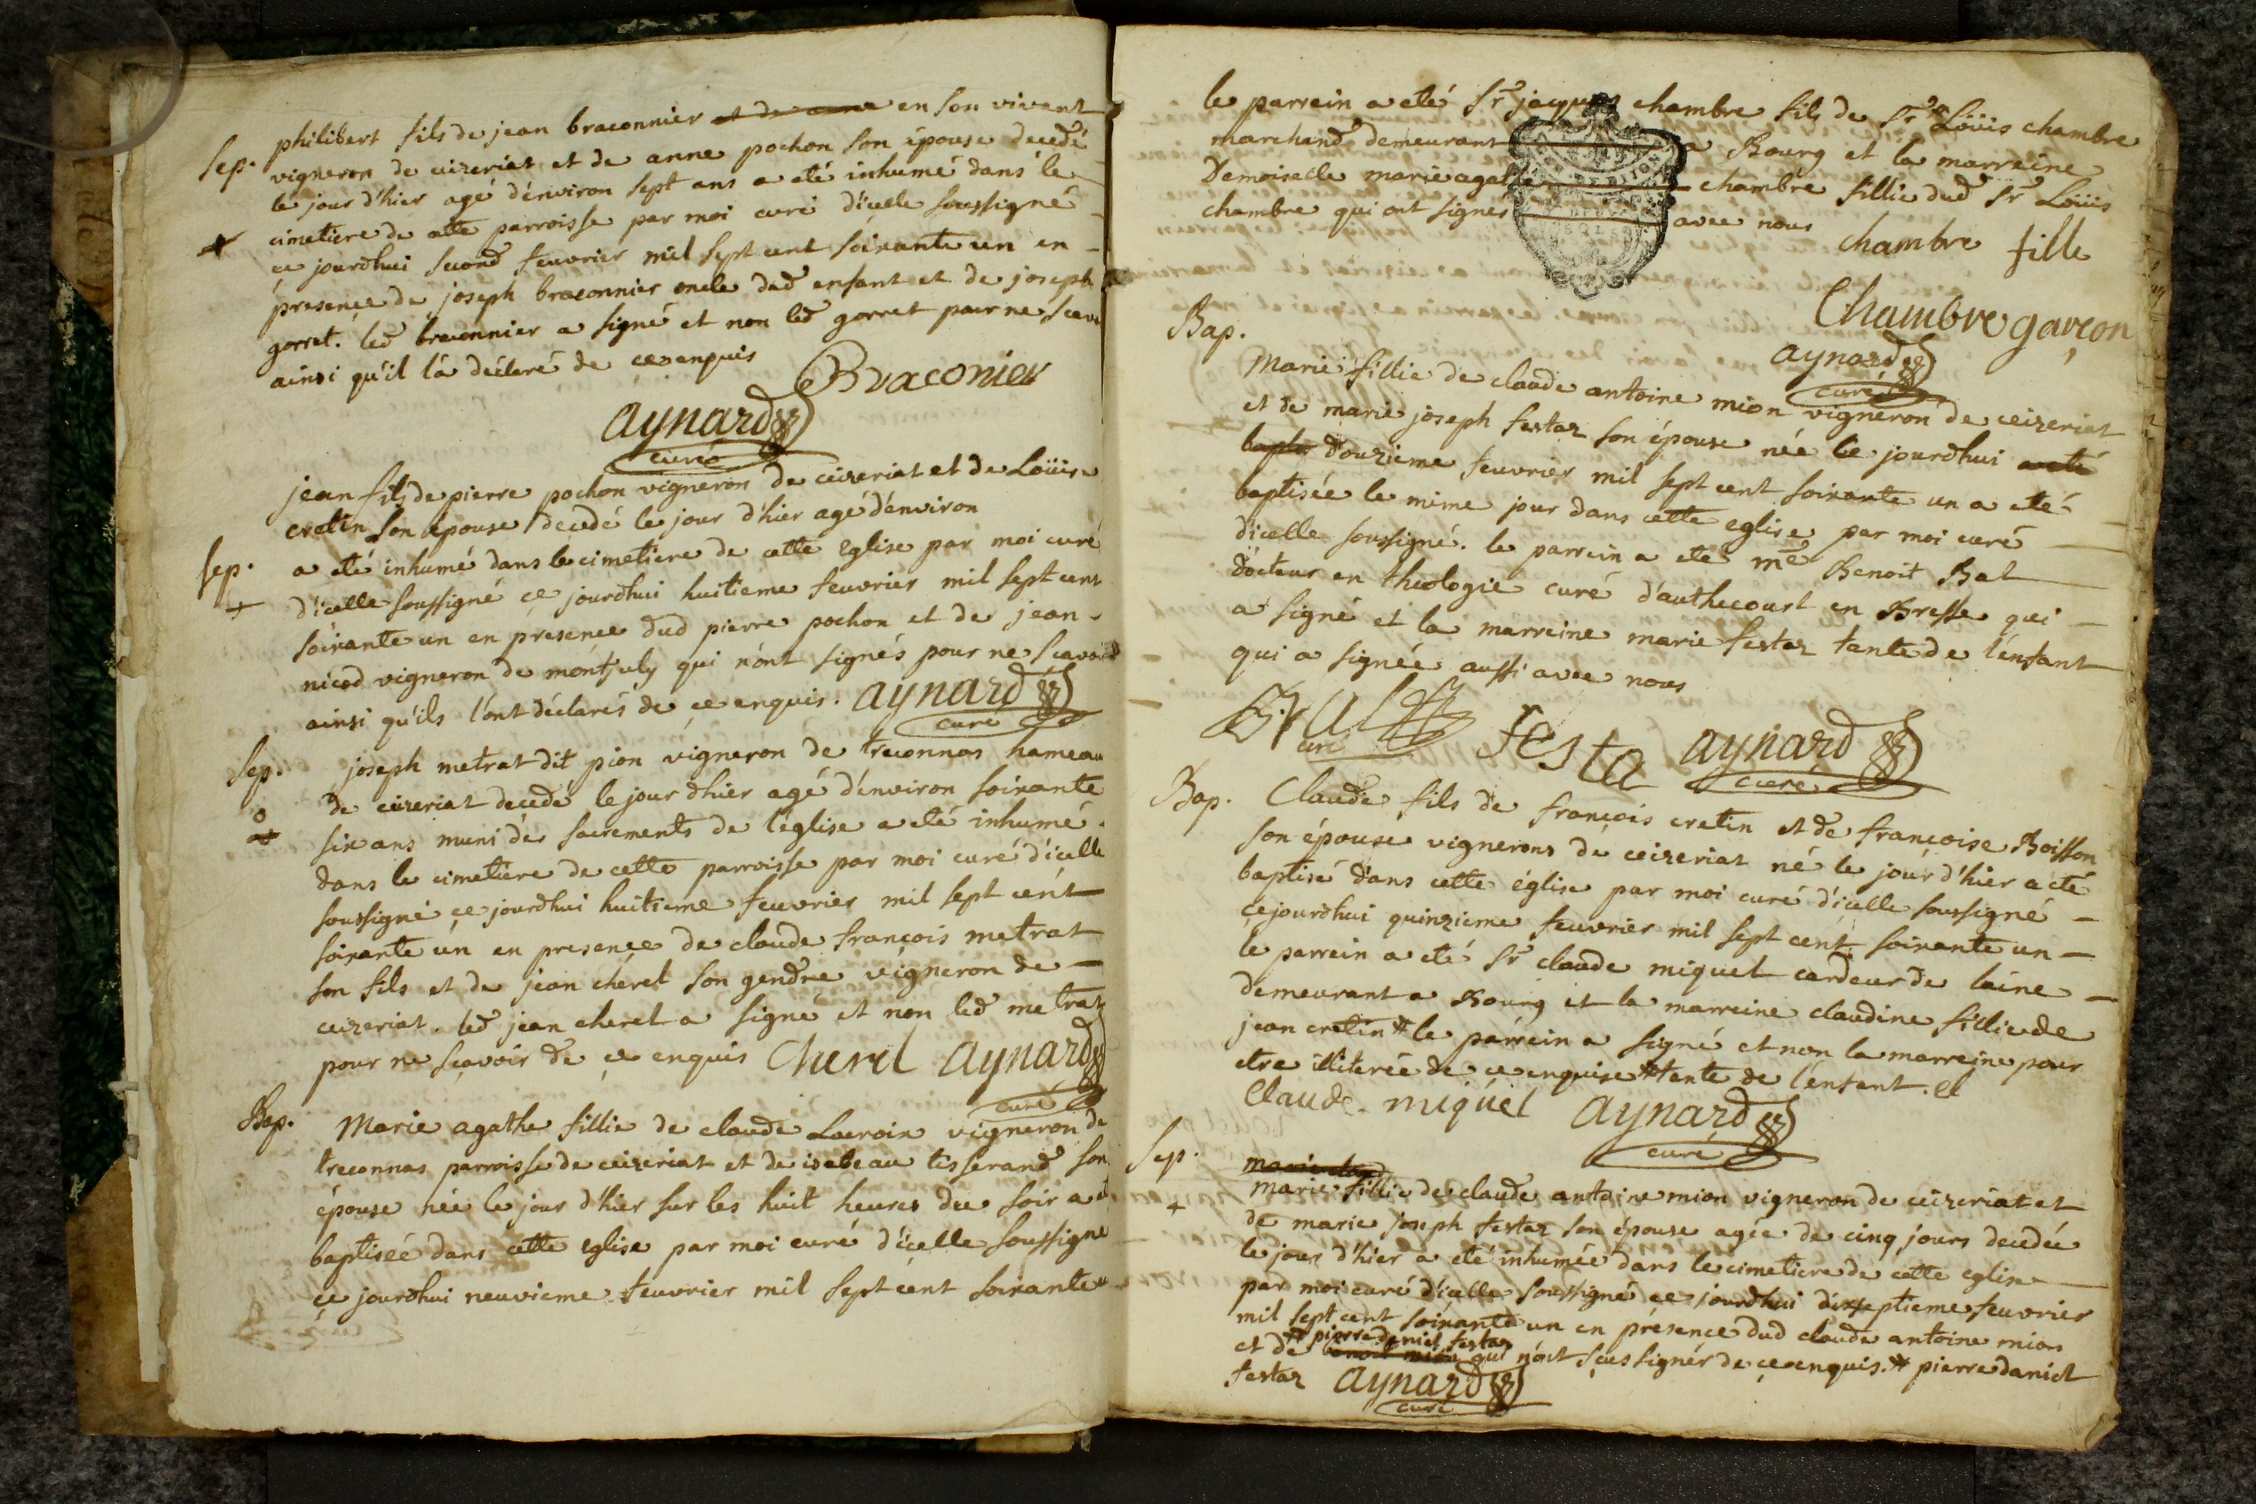 philibert fils de jean braconnier et de en son vivant
Sep. vigneron de ceizeriat et de anne pochon son épouse decedé
le jour d'hier agé d'énviron sept ans a eté inhumé dans le
cimetiere de cette parroisse par moi curé d'icelle soussigné
ce jourdhui second feuvrier mil sept cent soixante un en
présence de joseph braconnier oncle dud enfant et de joseph
gorret. led braconnier a signé et non led gorret pour ne scav
ainsi qu'il l'a déclaré de ce enquis
Braconier
aynard
curé
jean fils de pierre pochon vigneron de ceizeriat et de Loüise
cretin son épouse decedé le jour d'hier agé d'énviron
Sep. a eté inhumé dans le cimetiere de cette Eglise par moi curé
+ d'icelle soussigné ce jourdhui huitieme feuvrier mil sept cent
soixante un en présence dud pierre pochon et de jean
nicod vigneron de montjuly qui n'ont signés pour ne scavoir
ainsi qu'ils l'ont déclarés de ce enquis. aynard
curé
Sep. joseph metrat dit pion vigneron de treconnas hameau
de ceizeriat decedé le jour dhier agé d'énviron soixante
six ans muni des sacrements de l'église a eté inhumé
dans le cimetiere de cette parroisse par moi curé d'icelle
soussigné ce jourdhui huitieme feuvrier mil sept cent
soixante un en presence de claude françois metrat
son fils et de jean cheret son gendre vigneron de
ceizeriat. led jean cheret a signé et non led metrat
pour ne scavoir de ce enquis Cherel aynard
curé
Bap. Marie agathe fillie de claude Lacroix vigneron de
treconnas parroisse de ceizeriat et de isabeau tisserand son
épouse née le jour d'hier sur les huit heures du soir a eté
baptisée dans cette eglise par moi curé d'icelle soussigné
ce jourdhui neuvieme feuvrier mil sept cent soixante u
le parrein a eté Sr jacques chambre fils de Sr Loüis chambre
marchand demeurant a Bourg et la marreine
Demoiselle marie agathe chambre fillie dud Sr Loüis
chambre qui ont signés avec nous
chambre fille
Chambre garçon
aynard
curé
Bap.
Marie fillie de claude antoine mion vigneron de ceizeriat
et de marie joseph festaz son épouse née ce jourdhui a eté
bapte douzieme feuvrier mil sept cent soixante un a eté
baptisée le même jour dans cette eglise par moi curé
dicelle soussigné. le parrein a eté me Benoit Bal
docteur en théologie curé d'authecourt en Bresse qui
a signé et la marreine marie festaz tante de l'énfant
qui a signée aussi avec nous
Bal curé festa aynard
curé
Bap. Claude fils de françois cretin et de françoise Boisson
son épouse vignerons de ceizeriat né le jour d'hier a eté
baptisé dans cette église par moi curé d'icelle soussigné
cejourdhui quinzieme feuvrier mil sept cent soixante un
le parrein a eté Sr claude miquel cardeur de laine
demeurant a Bourg et la marreine claudine fillie de
jean cretin # le parrein a signé et non la marreine pour
etre illiterée de ce enquise # tante de l'énfant. et
Claude. miquel aynard
curé
Sep.
marie
+ marie fillie de claude antoine mion vigneron de ceizeriat et
de marie joseph festaz son épouse agée de cinq jours decedée
le jour d'hier a eté inhumée dans le cimetiere de cette eglise
par moi curé d'icelle soussigné ce jourdhui dixseptieme feuvrier
mil sept cent soixante un en présence dud claude antoine mion
# pierre daniel festaz
et de benoit mion qui n'ont sçus signér de ce enquis. # pierre daniel
festaz aynard
curé